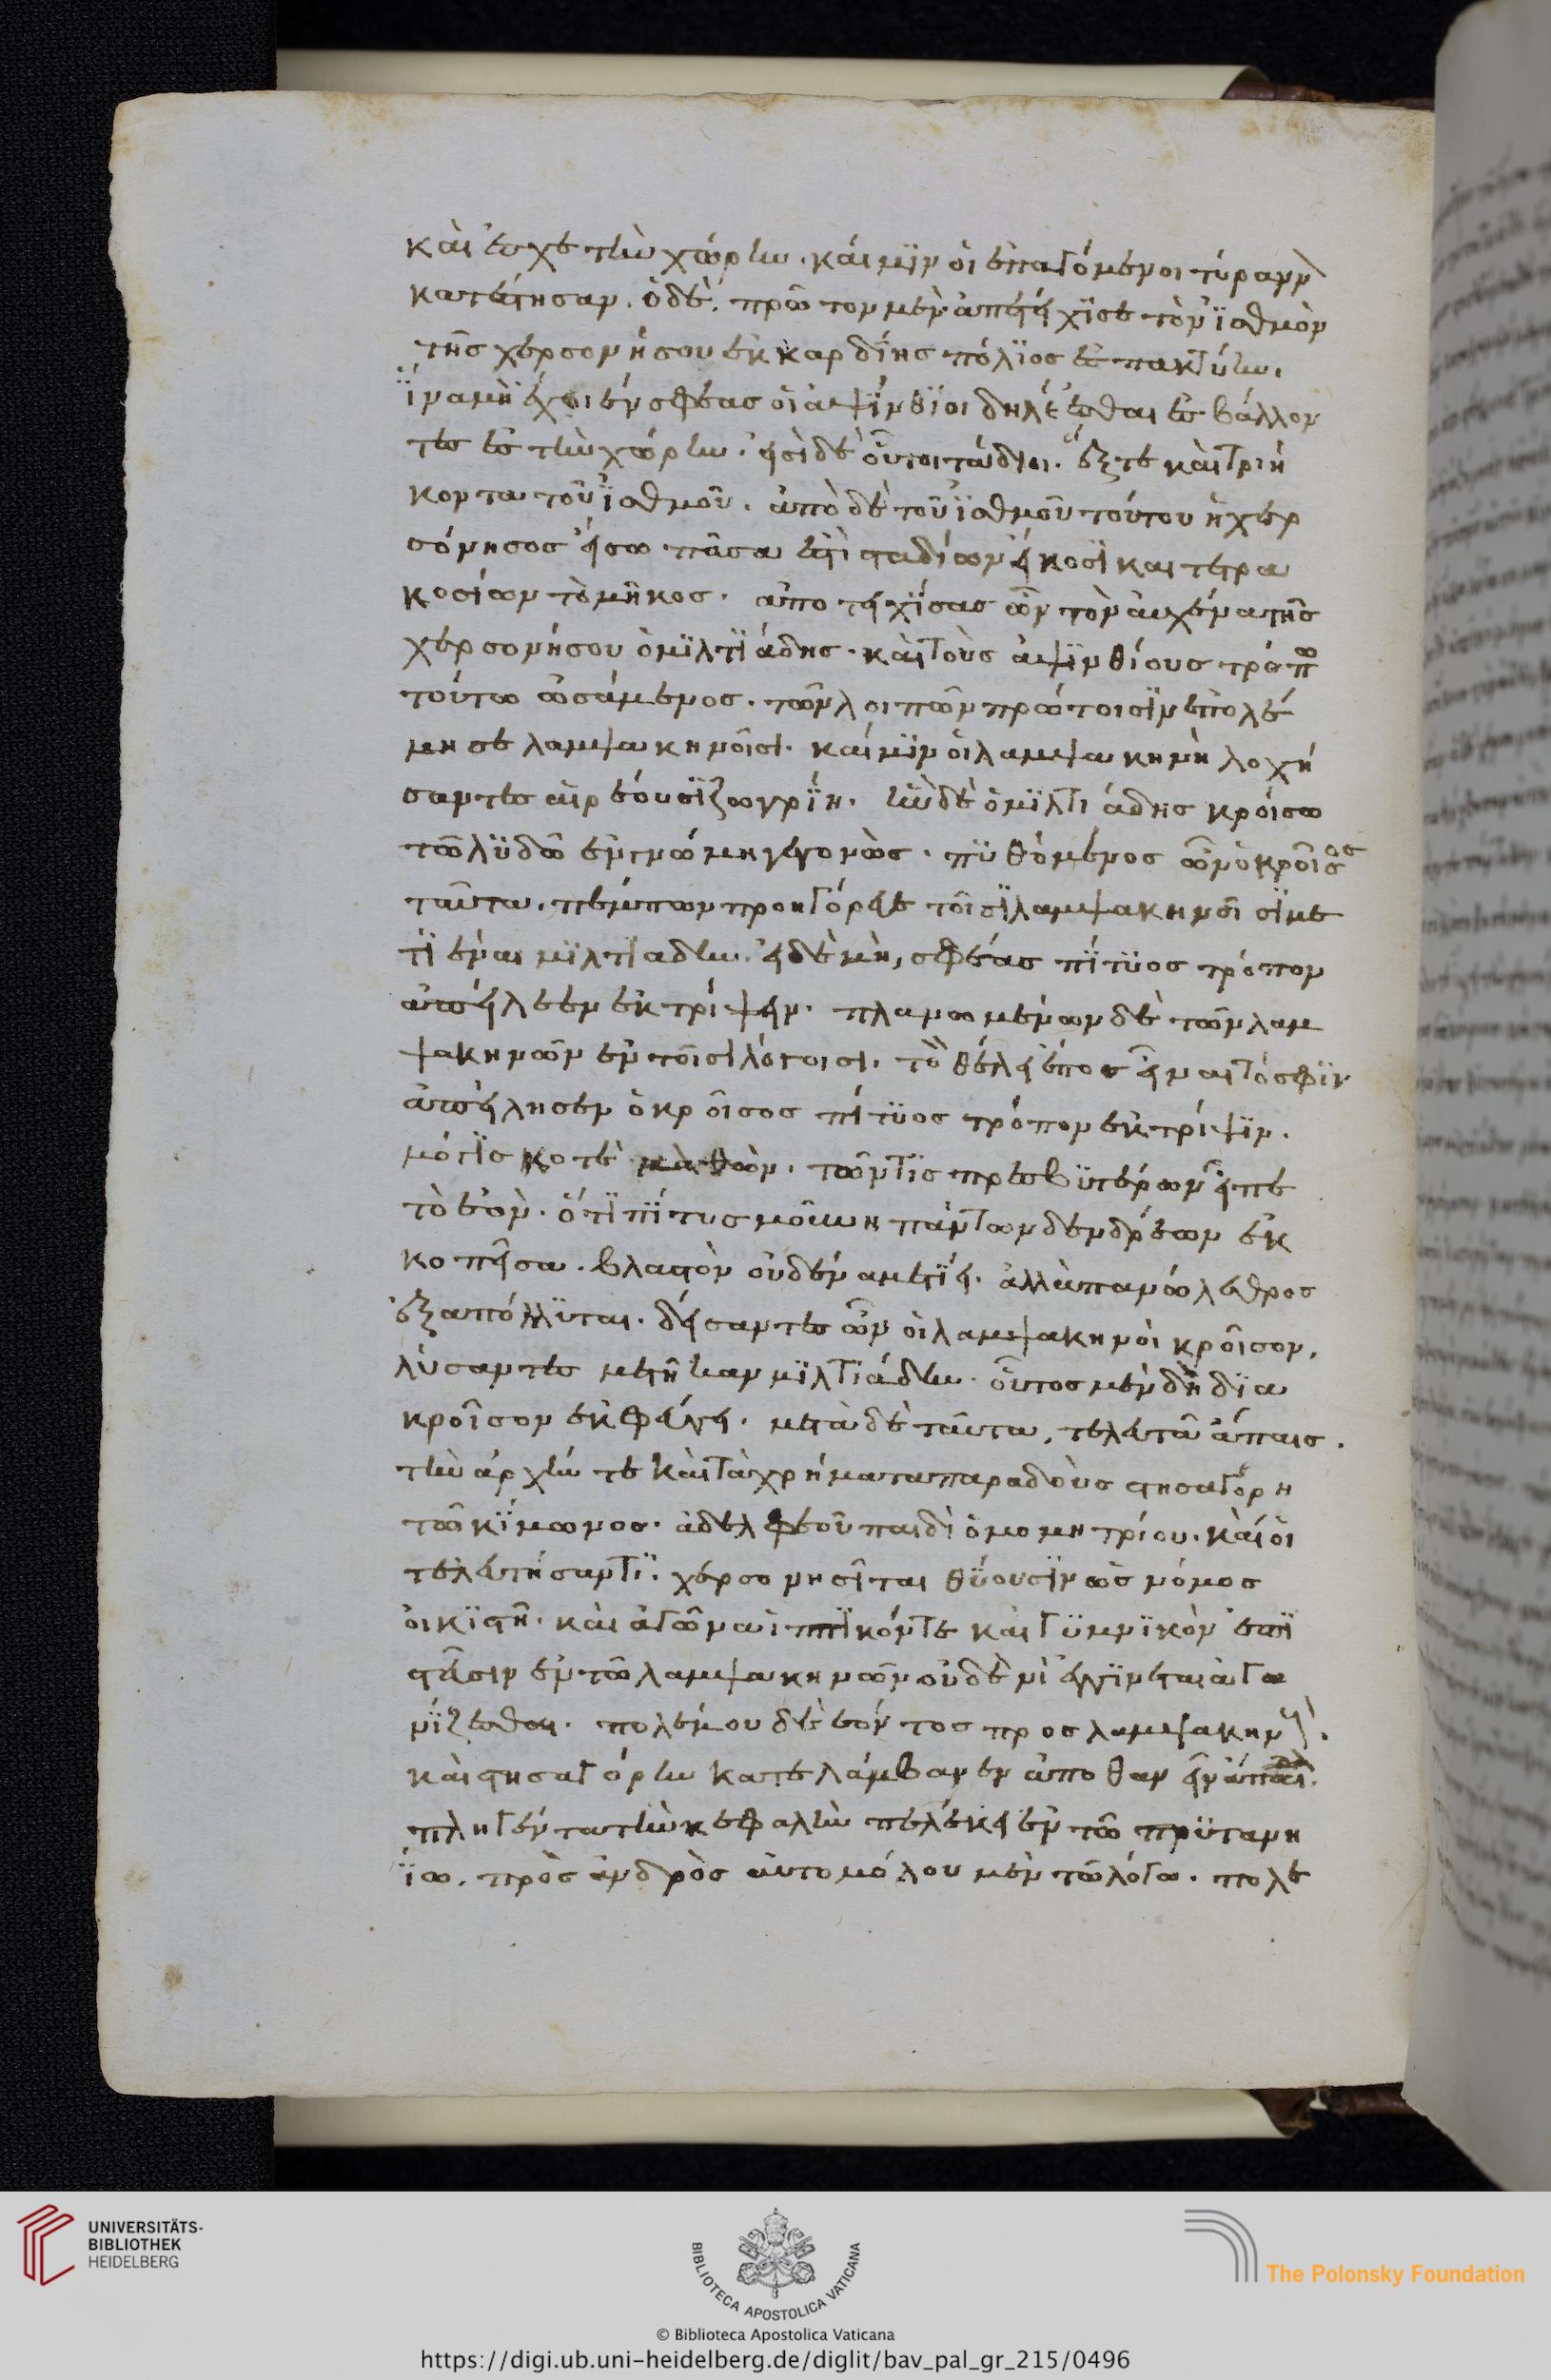 καὶ ἔσχε τὴν χώρην. καί μϊν οἱ ἐπαγόμενοι τύρανν
κατέστησαν. ὁ δὲ, πρῶτον μὲν ἀπετείχϊσε τὸν ἰσθμὸν
τῆς χερσονήσου ἐκ καρδίης πόλϊος ἐς πακτύην.
ἵνα μὴ ἔχοιεν σφέας οἱ ἀψίνθϊοι δηλέεσθαι ἐσβάλλον
τες ἐς τὴν χώρην. εἰσὶ δὲ οὗτοι στάδιοι. ἕξ τε καὶ τριή
κοντα τοῦ ἰσθμοῦ. ἀπὸ δὲ τοῦ ἰσθμοῦ τούτου ἡ χερ
σόνησος εἴσω πᾶσα ἐστὶ σταδίων εἴκοσϊ καὶ τετρα
κοσίων τὸ μῆκος. ἀποτειχίσας ὦν τὸν αὐχένα τῆς
χερσονήσου ὁ μϊλτϊάδης. καὶ τοὺς ἀψϊνθίους τρόπω
τούτω ὠσάμενος. τῶν λοιπῶν πρώτοισϊν ἐπολέ
μησε λαμψακηνοῖσι. καί μϊν οἱ λαμψακηνὴ λοχή
σαντες αἱρέουσϊ ζωγρίη. ἦν δὲ ὁ μϊλτιάδης κροίσω
τῶ λϋδῶ ἐν γνώμη γεγονώς. πϋθόμενος ὦν ὁ κροῖσος
ταῦτα, πέμπων προηγόρευε τοῖσϊ λαμψακηνοῖσϊ με
τϊέναι μϊλτϊάδην. εἰ δὲ μὴ, σφέας πίτϋος τρόπον
ἀπείλεεν ἐκτρίψειν. πλανωμένων δὲ τῶν λαμ
ψακηνῶν ἐν τοῖσϊ λόγοισι. τὸ θέλει ἔπος εἶναι τό σφϊν
ἀπείλησεν ὁ κροῖσος πίτϋος τρόπον ἐκτρίψϊν.
μόγϊς κοτὲ μαθὼν. τῶν τϊς πρεσβϋτέρων εἶπε
τὸ ἐὸν. ὅτϊ πίτυς μούνη πάντων δενδρέων ἐκ
κοπεῖσα. βλαστὸν οὐδένα μετϊεῖ. ἀλλὰ πανώλεθρος
ἐξαπόλλϋται. δείσαντες ὦν οἱ λαμψακηνοὶ κροῖσον,
λύσαντες μετῆκαν μϊλτϊάδην. οὗτος μὲν δὴ δϊὰ
κροῖσον ἐκφεύγει. μετὰ δὲ ταῦτα, τελευτᾶ ἄπαις.
τὴν ἀρχήν τε καὶ τὰ χρήματα παραδοὺς στησαγόρη
τῶ κϊμωνος. ἀδελφεοῦ παιδὶ ὁμομητρίου. καί οἱ
τελευτήσαντϊ. χερσονησῖται θϋουσϊν ὡς νόμος
οἰκϊστῆ. καὶ ἀγῶνα ἱππϊκόν τε καὶ γϋμνϊκὸν ἐπϊ
στᾶσιν ἐν τῶ λαμψακηνῶν οὐδὲνὶ ἐγγίνεται ἀγω
νίζεσθαι. πολέμου δὲ ἐόντος πρὸς λαμψακην.
καὶ στησαγόρην κατελάμβανεν ἀποθανεῖν ἄπαιδα.
πληγέντα τὴν κεφαλὴν πελέκει ἐν τῶ πρϋτανη
ίω, πρὸς ἀνδρὸς αὐτομόλου μὲν τῶ λόγω. πολε
UNIVERSITÄTS-
BIBLIOTHEK
HEIDELBERG
BIBLIOTECA APOSTOLICA VATICANA
The Polonsky Foundation
© Biblioteca Apostolica Vaticana
https://digi.ub.uni-heidelberg.de/diglit/bav_pal_gr_215/0496